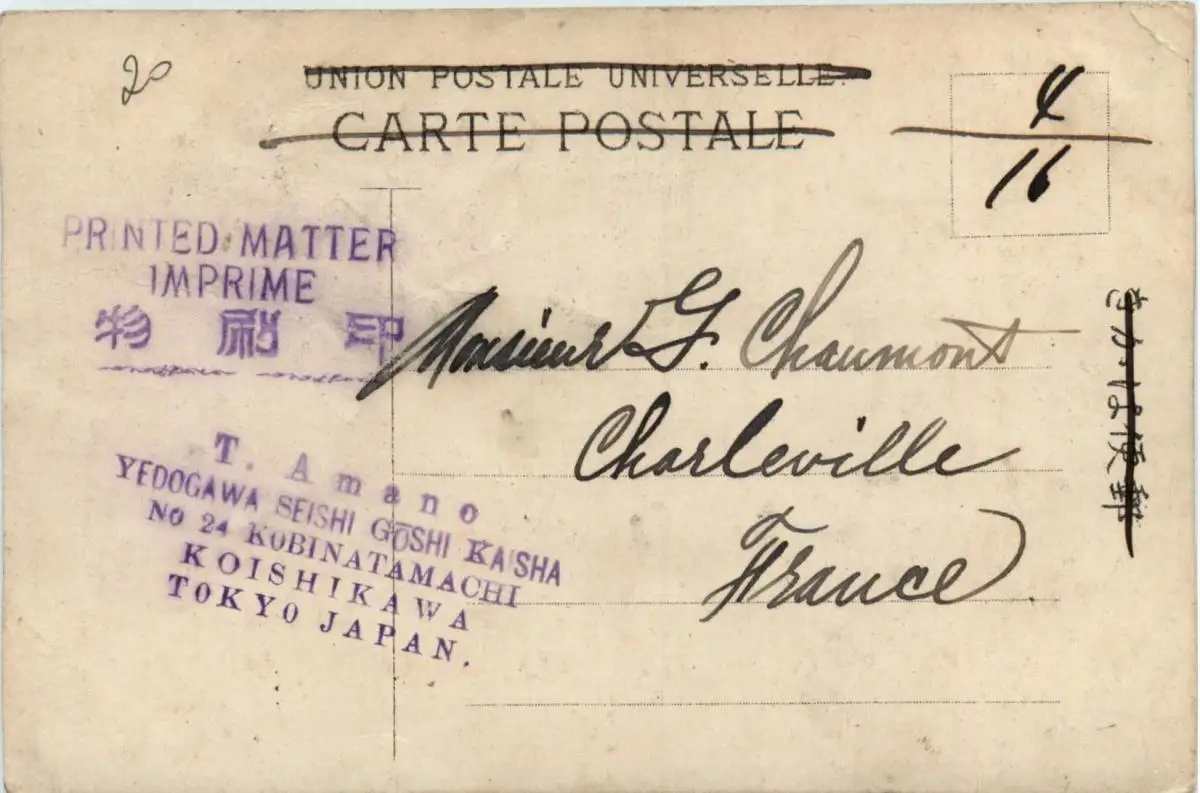 20
UNION POSTALE UNIVERSELLE.
CARTE POSTALE
4
16
PRINTED MATTER
IMPRIME
物刷印
Monsieur G. Chaumont
Charleville
France
T. Amano
YEDOGAWA SEISHI GOSHI KAISHA
No 24 KOBINATAMACHI
KOISHIKAWA
TOKYO JAPAN.
きかは便郵